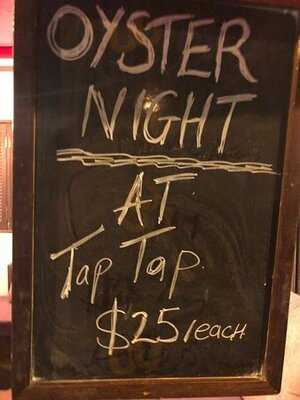 OYSTER
NIGHT
AT
Tap Tap.
$25/each